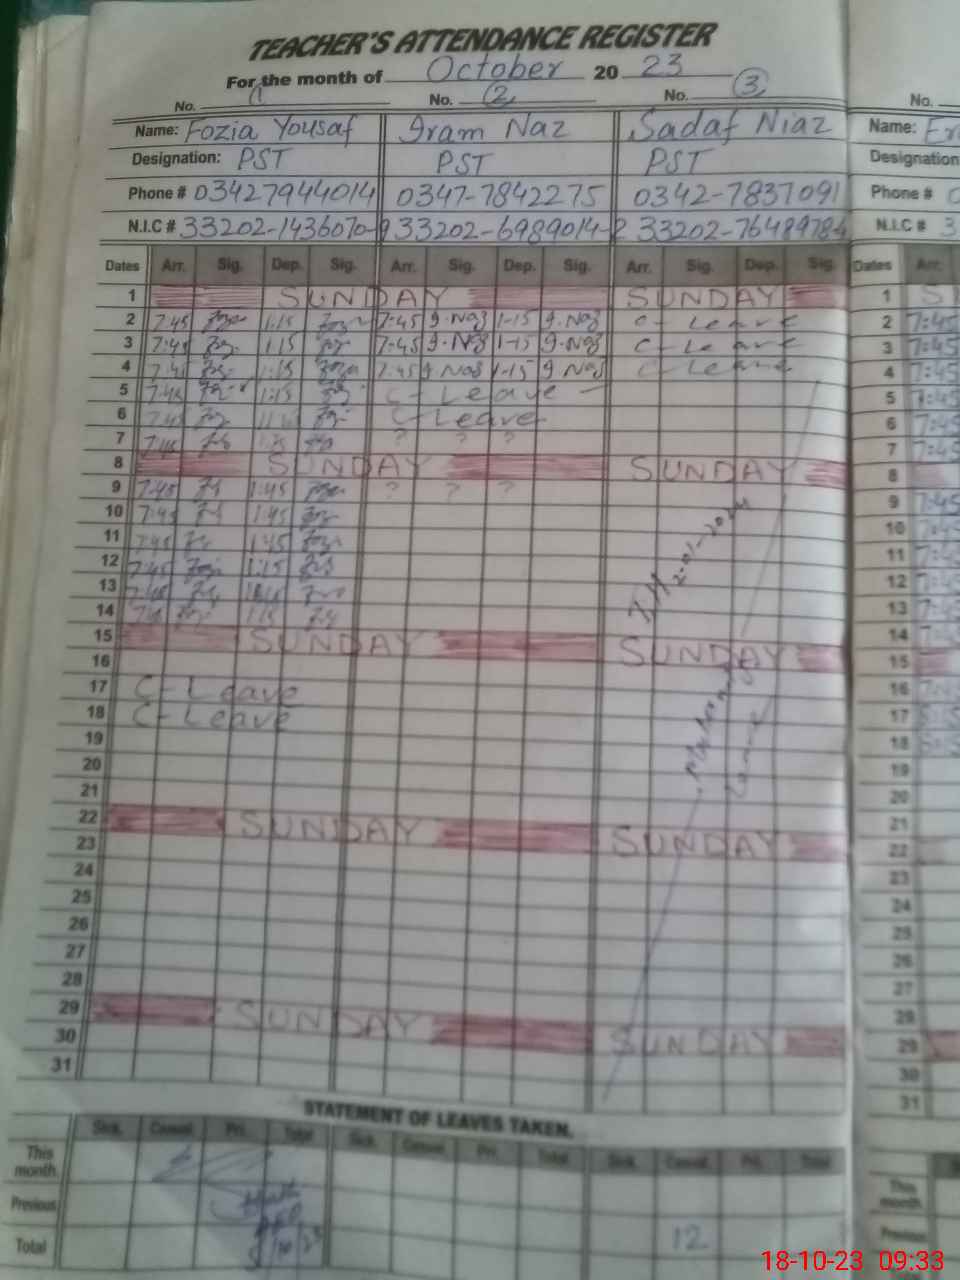 TEACHER'S ATTENDANCE REGISTER
For the month of October 20 23
No. 1 No. 2 No. 3 No.
Name: Fozia Yousaf Iram Naz Sadaf Niaz Name:
Designation: PST PST PST Designation
Phone # 03427944014 0347-7842275 0342-7837091 Phone #
N.I.C # 33202-1436070-9 33202-6989014-2 33202- N.I.C # 3
Dates Arr. Sig. Dep. Sig. Arr. Sig. Dep. Sig. Arr. Sig. Dep. Sig. Dates Arr.
1 SUNDAY SUNDAY 1
2 7:45 1:15 7:45 I.Naz 1-15 I.Naz C-Leave 2 7:45
3 7:45 1:15 7:45 I.Naz 1-15 I.Naz C-Leave 3 7:45
4 7:45 1:15 7:45 I.Naz 1-15 I.Naz C-Leave 4 7:45
5 7:45 1:15 C-Leave 5 7:45
6 7:45 C-Leave 6 7:45
7 7:45 ? ? ? 7 7:45
8 SUNDAY SUNDAY 8
9 7:45 1:45 ? ? ? 9 7:45
10 7:45 1:45 10 7:45
11 7:45 1:45 11 7:45
12 7:45 1:15 12 7:45
13 13 7:45
14 1:15 14
15 SUNDAY SUNDAY 15
16 16
17 C-Leave 17
18 C-Leave 18
19 19
20 20
21 21
22 SUNDAY 22
23 SUNDAY 23
24 24
25 25
26 26
27 27
28 28
29 SUNDAY 29
30 SUNDAY 30
31 31
Leave
STATEMENT OF LEAVES TAKEN.
Sick. Casual Pri. Total Sick. Casual Pri. Total Sick. Casual Pri. Total
This month. This month.
Previous Previous
Total 12
18-10-23 09:33